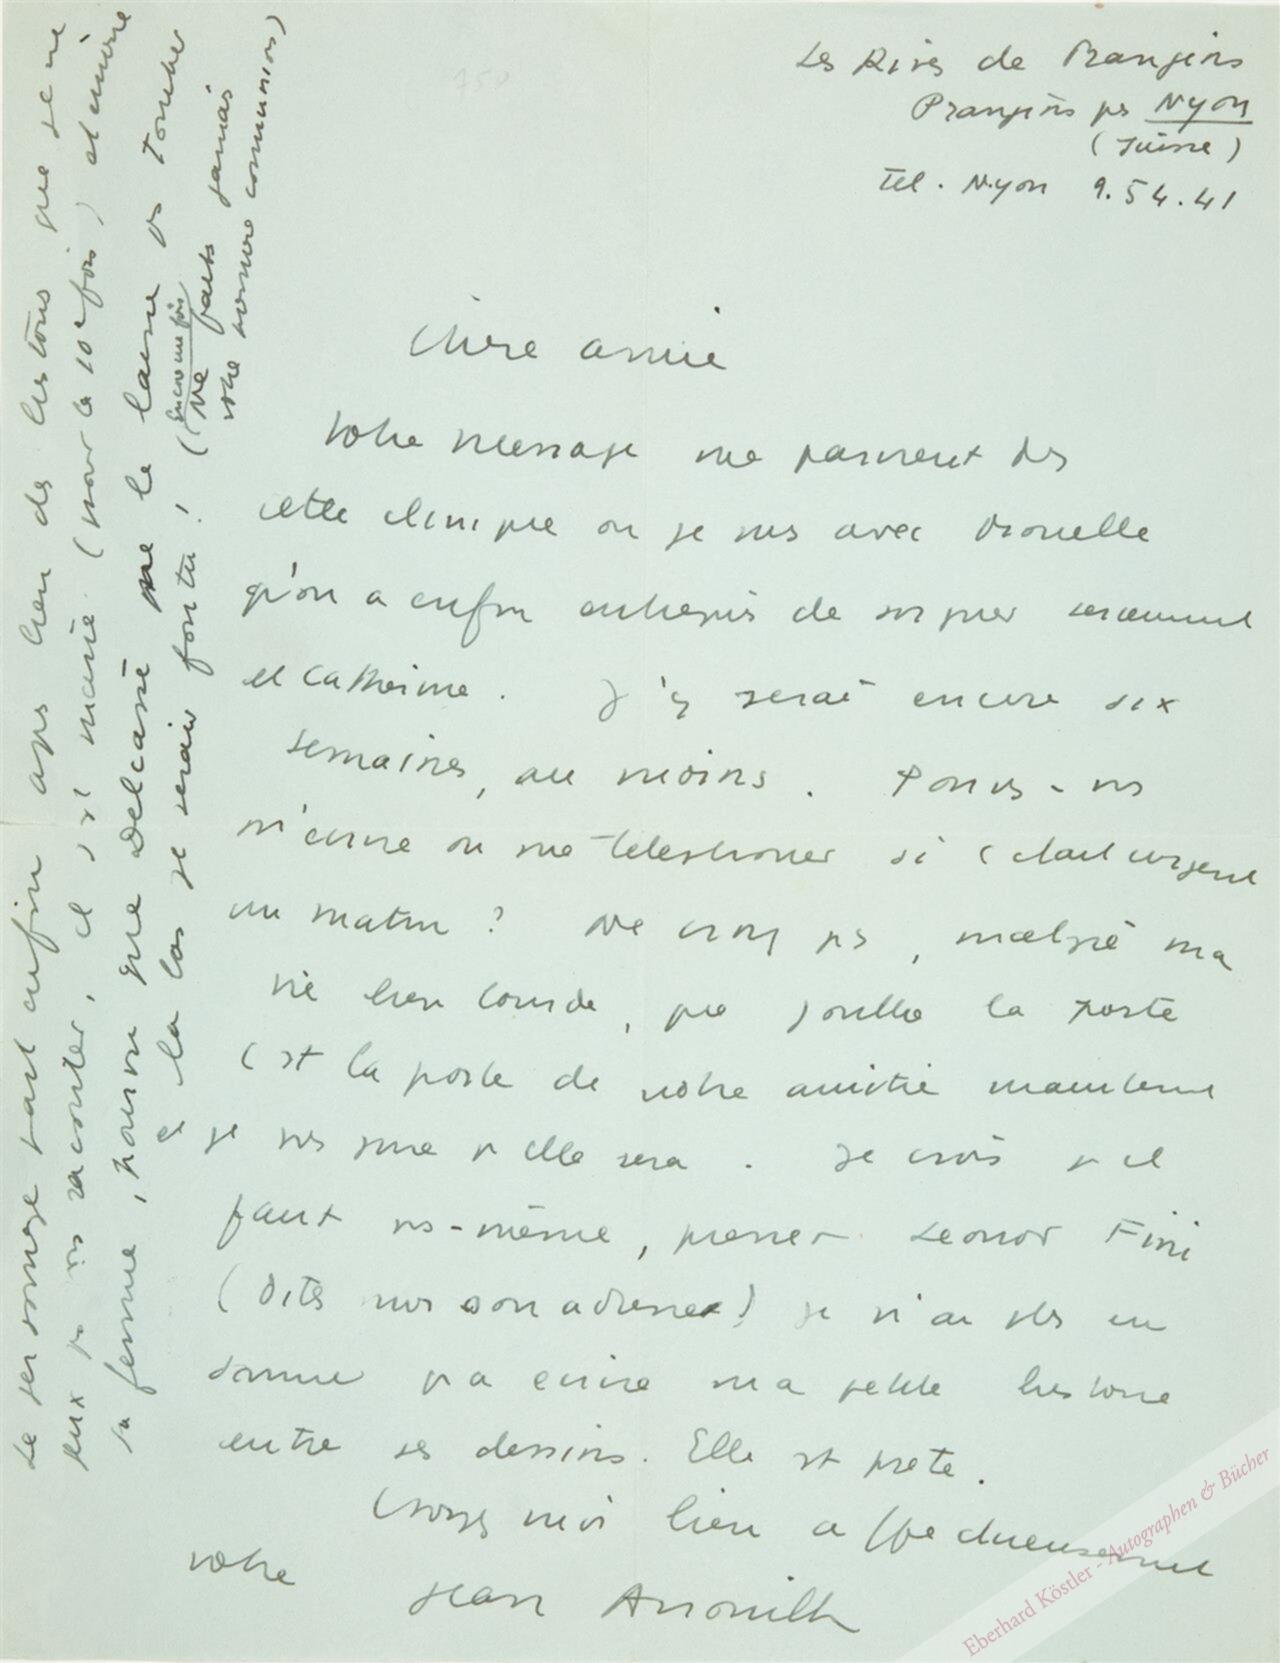 Les Rives de Prangins
Prangins ps Nyon
(Suisse)
Tel. Nyon 9.54.41
Chère amie
Votre message me parvient ds
cette clinique ou je suis avec Monelle
qu'on a enfin entrepris de soigner serieusement
et Catherine. J'y serai encore six
semaines, au moins. Pouvez-vs
m'ecrire ou me telephoner si c'etait urgent
un matin? Ne croyez ps, malgré ma
vie bien lourde, que j'oublie la porte
C'est la porte de notre amitié maintenant
et je suis sure qu'elle sera. Je crois qu'il
faut vs-même, presser Leonor Fini
(Dites moi son adresse) je n'ai ps eu
sa ma petite histoire
entre ses dessins. Elle est prete.
Croyez moi bien affectueusement
votre Jean Anouilh
Le personnage sait enfin aps bien des histoires que je ne
peux ps vs raconter, il s'est marié (pour la 10e fois) et aime
sa femme, pourvu que Delcassé me le laisse vs toucher
la las je serais foutu! (Ne parts jamais
encore une fois
votre commissions)
Eberhard Köstler - Autographen & Bücher